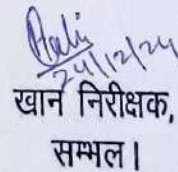 24/12/24
खान निरीक्षक,
सम्भल।